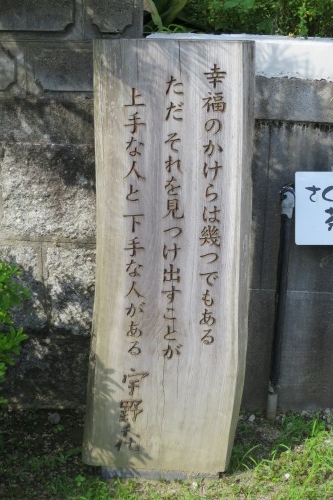 幸福のかけらは幾つでもある
ただ それを見つけ出すことが
上手な人と 下手な人がある
宇野千代
さく